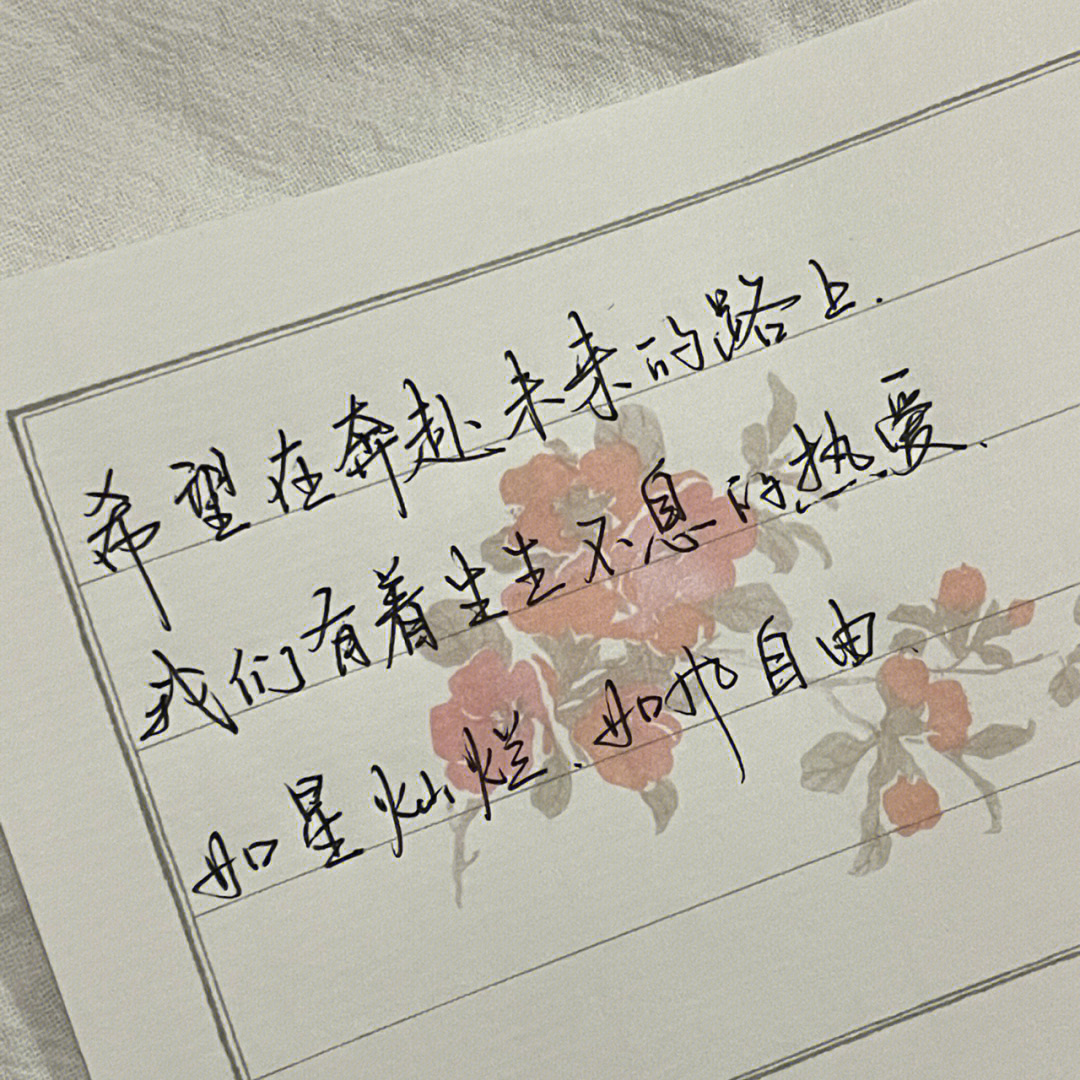 希望在奔赴未来的路上.
我们有着生生不息的热爱.
如星灿烂.如帆自由.